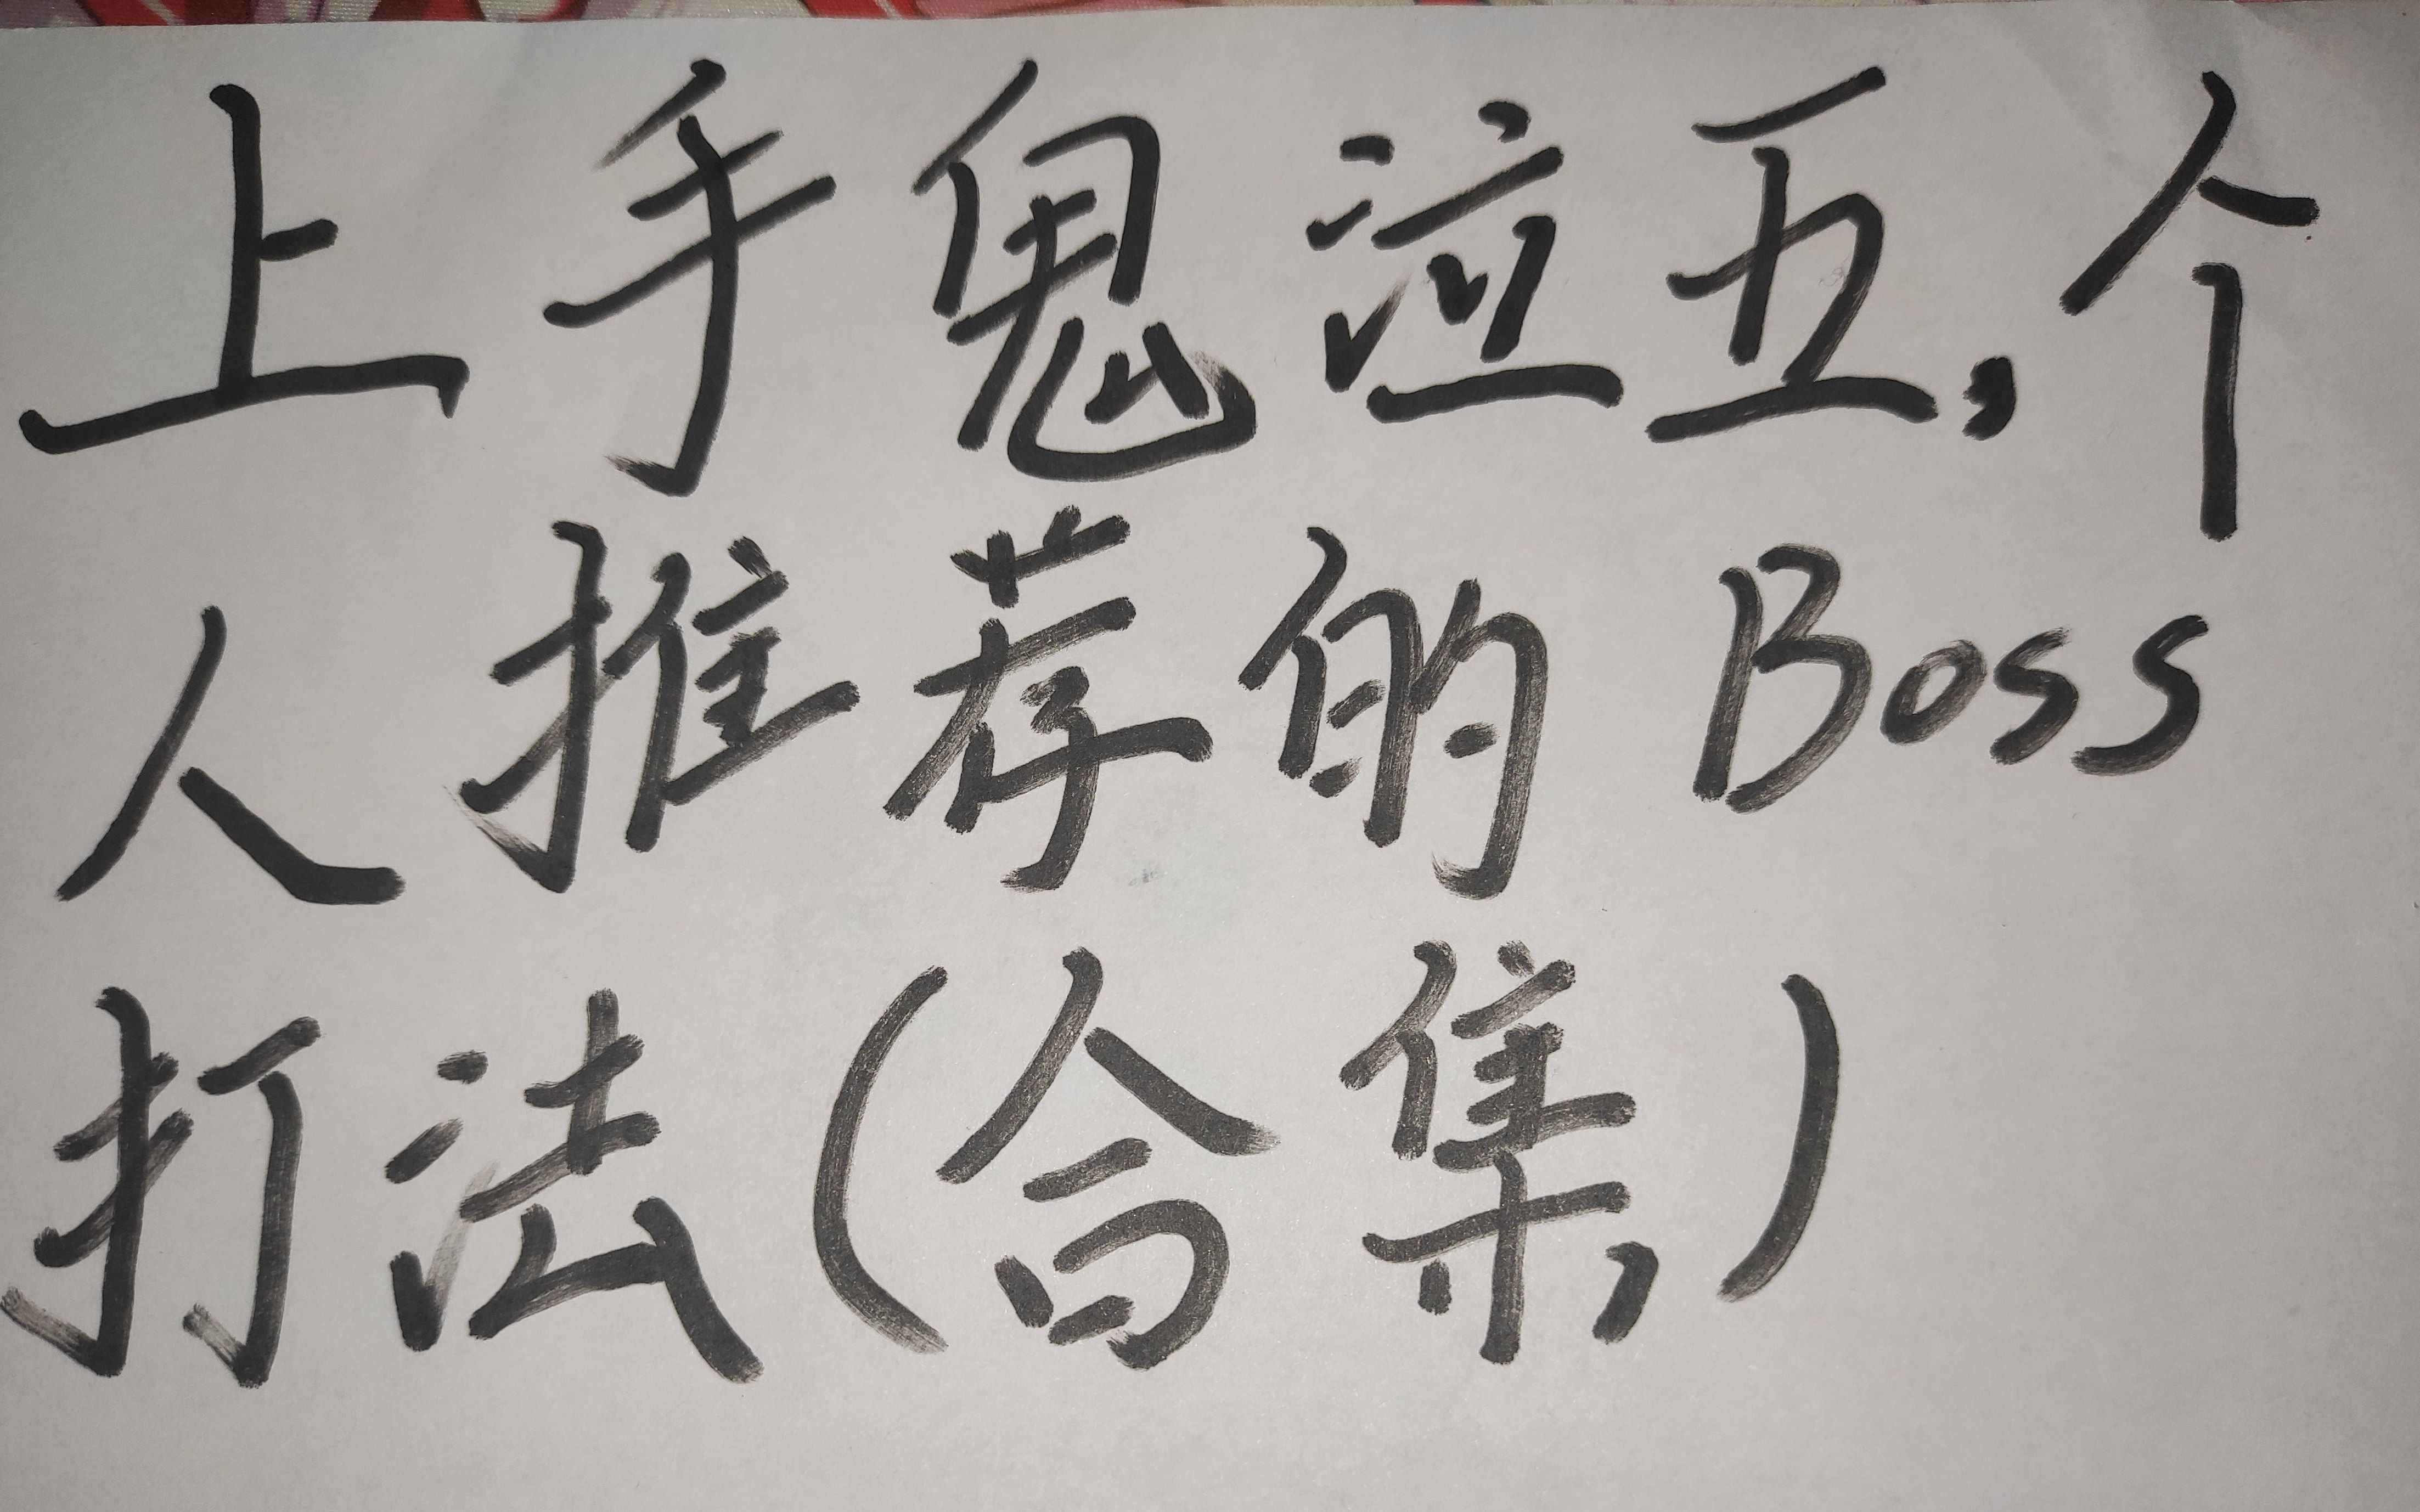 上手鬼泣五,个
人推荐的Boss
打法(合集,)